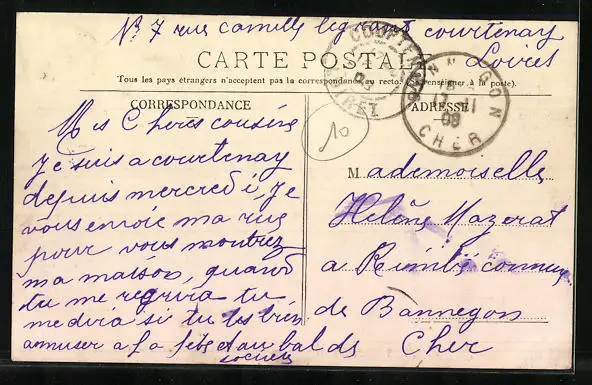 No 7 rue camille legrand courtenay
Loiret
CARTE POSTALE
Tous les pays étrangers n'acceptent pas la correspondance au recto. (Se renseigner à la poste).
CORRESPONDANCE
ADRESSE
COURTENAY
LOIRET
BANNEGON
CHER
08
10
Mes Chères cousine
Je suis a courtenay
depuis mercredi, Je
vous envoie ma rue
pour vous montrez
ma maison, quand
tu me
tu
me dira si tu tes bien
amuser a la fête et au bal de
Mademoiselle
Helène Mazerat
a commune
de Bannegon
Cher